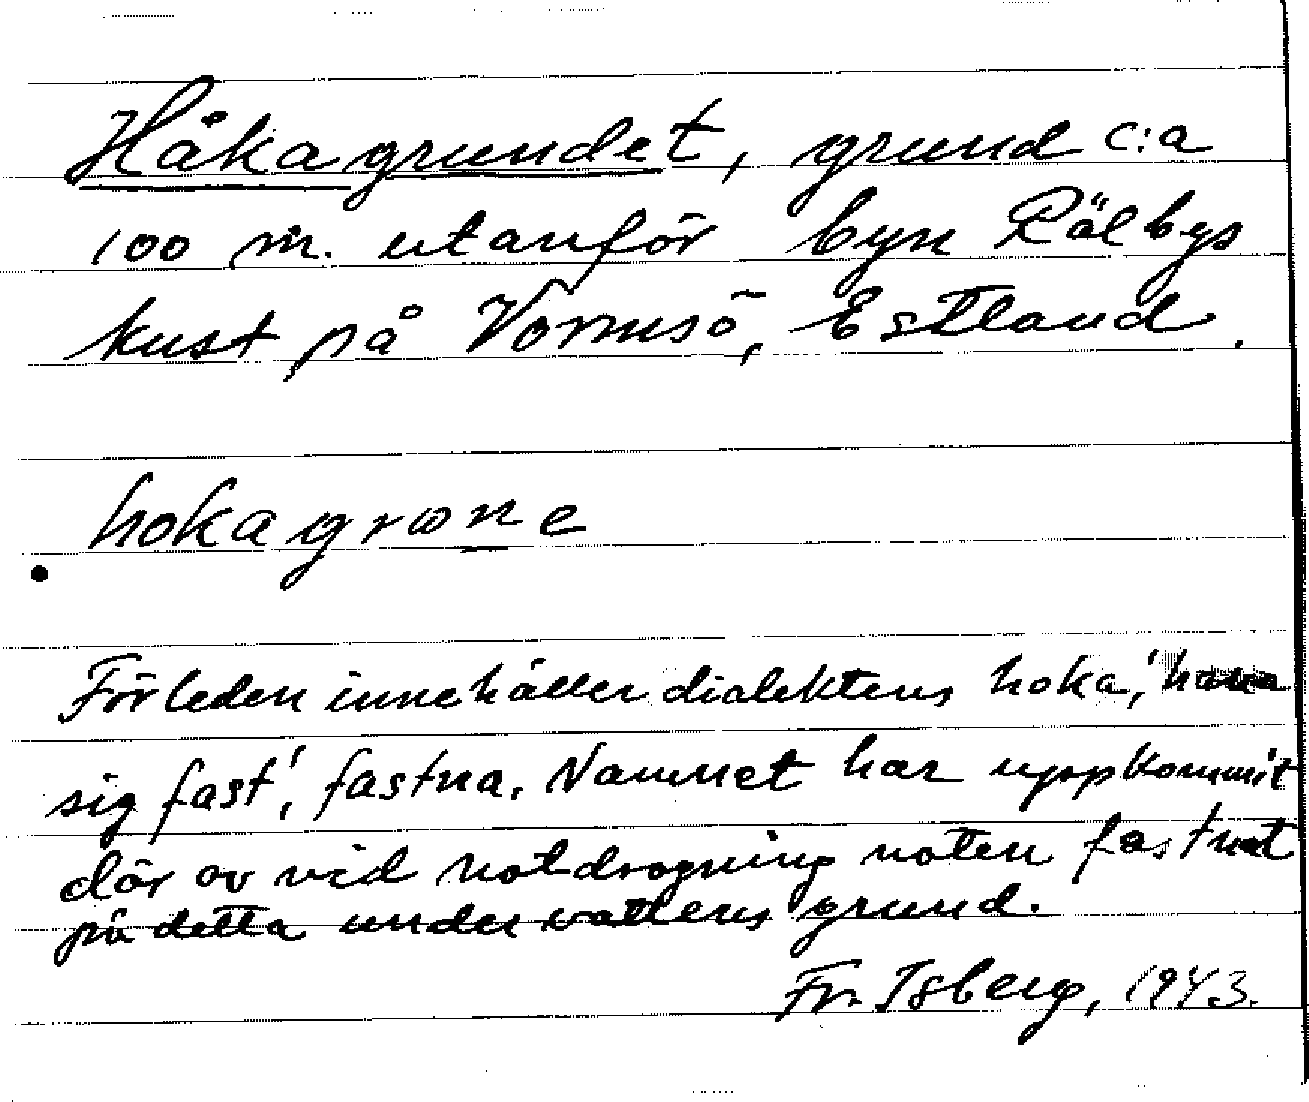 Håkagrundet, grund c:a
100 m. utanför byn Rälbys
kust på Vormsö, Estland.
hokagrωne
Förleden innehåller dialektens hoka, 'haka
sig fast', fastna. Namnet har uppkommit
där av vid notdragning noten fastnat
på detta undervattens grund.
Fr. Isberg, 1943.